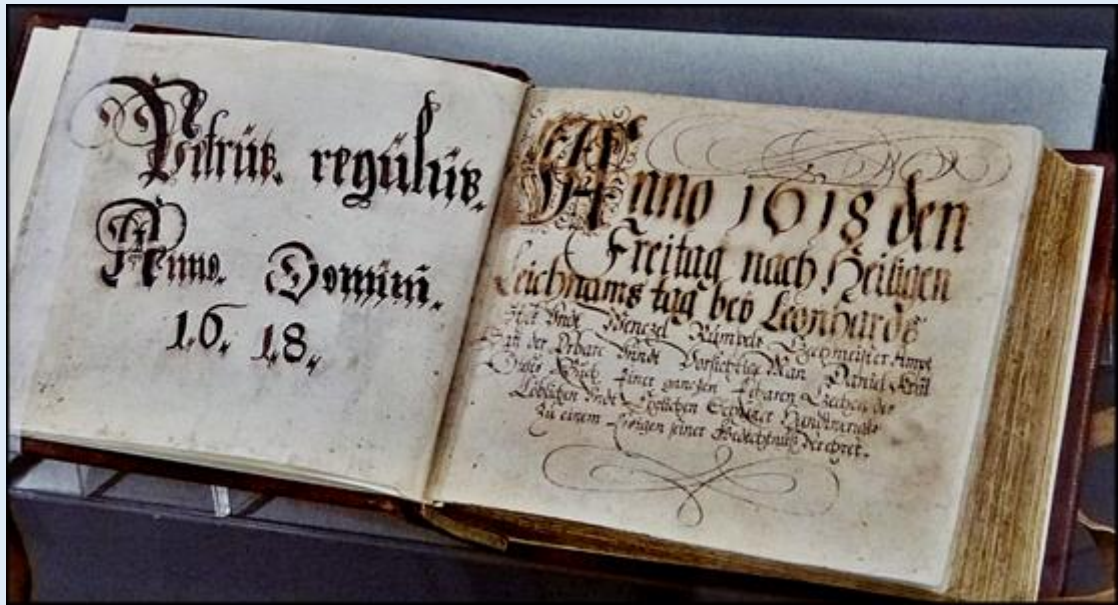 Petrüs. regülüs.
Anno. Domini.
16. 18.
Anno 1618 den
Freitag nach Heiligen
Leichnams tag bey Leonhards
Vndt Wenczel Rümbelt Czechmeister Ampt
Hatt der Erbare Vnndt Vorsichtige Man Daniel
Dieses Büch Einer ganczen Erbaren Czechen der
Löblichen Vndt Handtwergks
Zu einem Ewigen seiner Gedechtnüß Verehret.